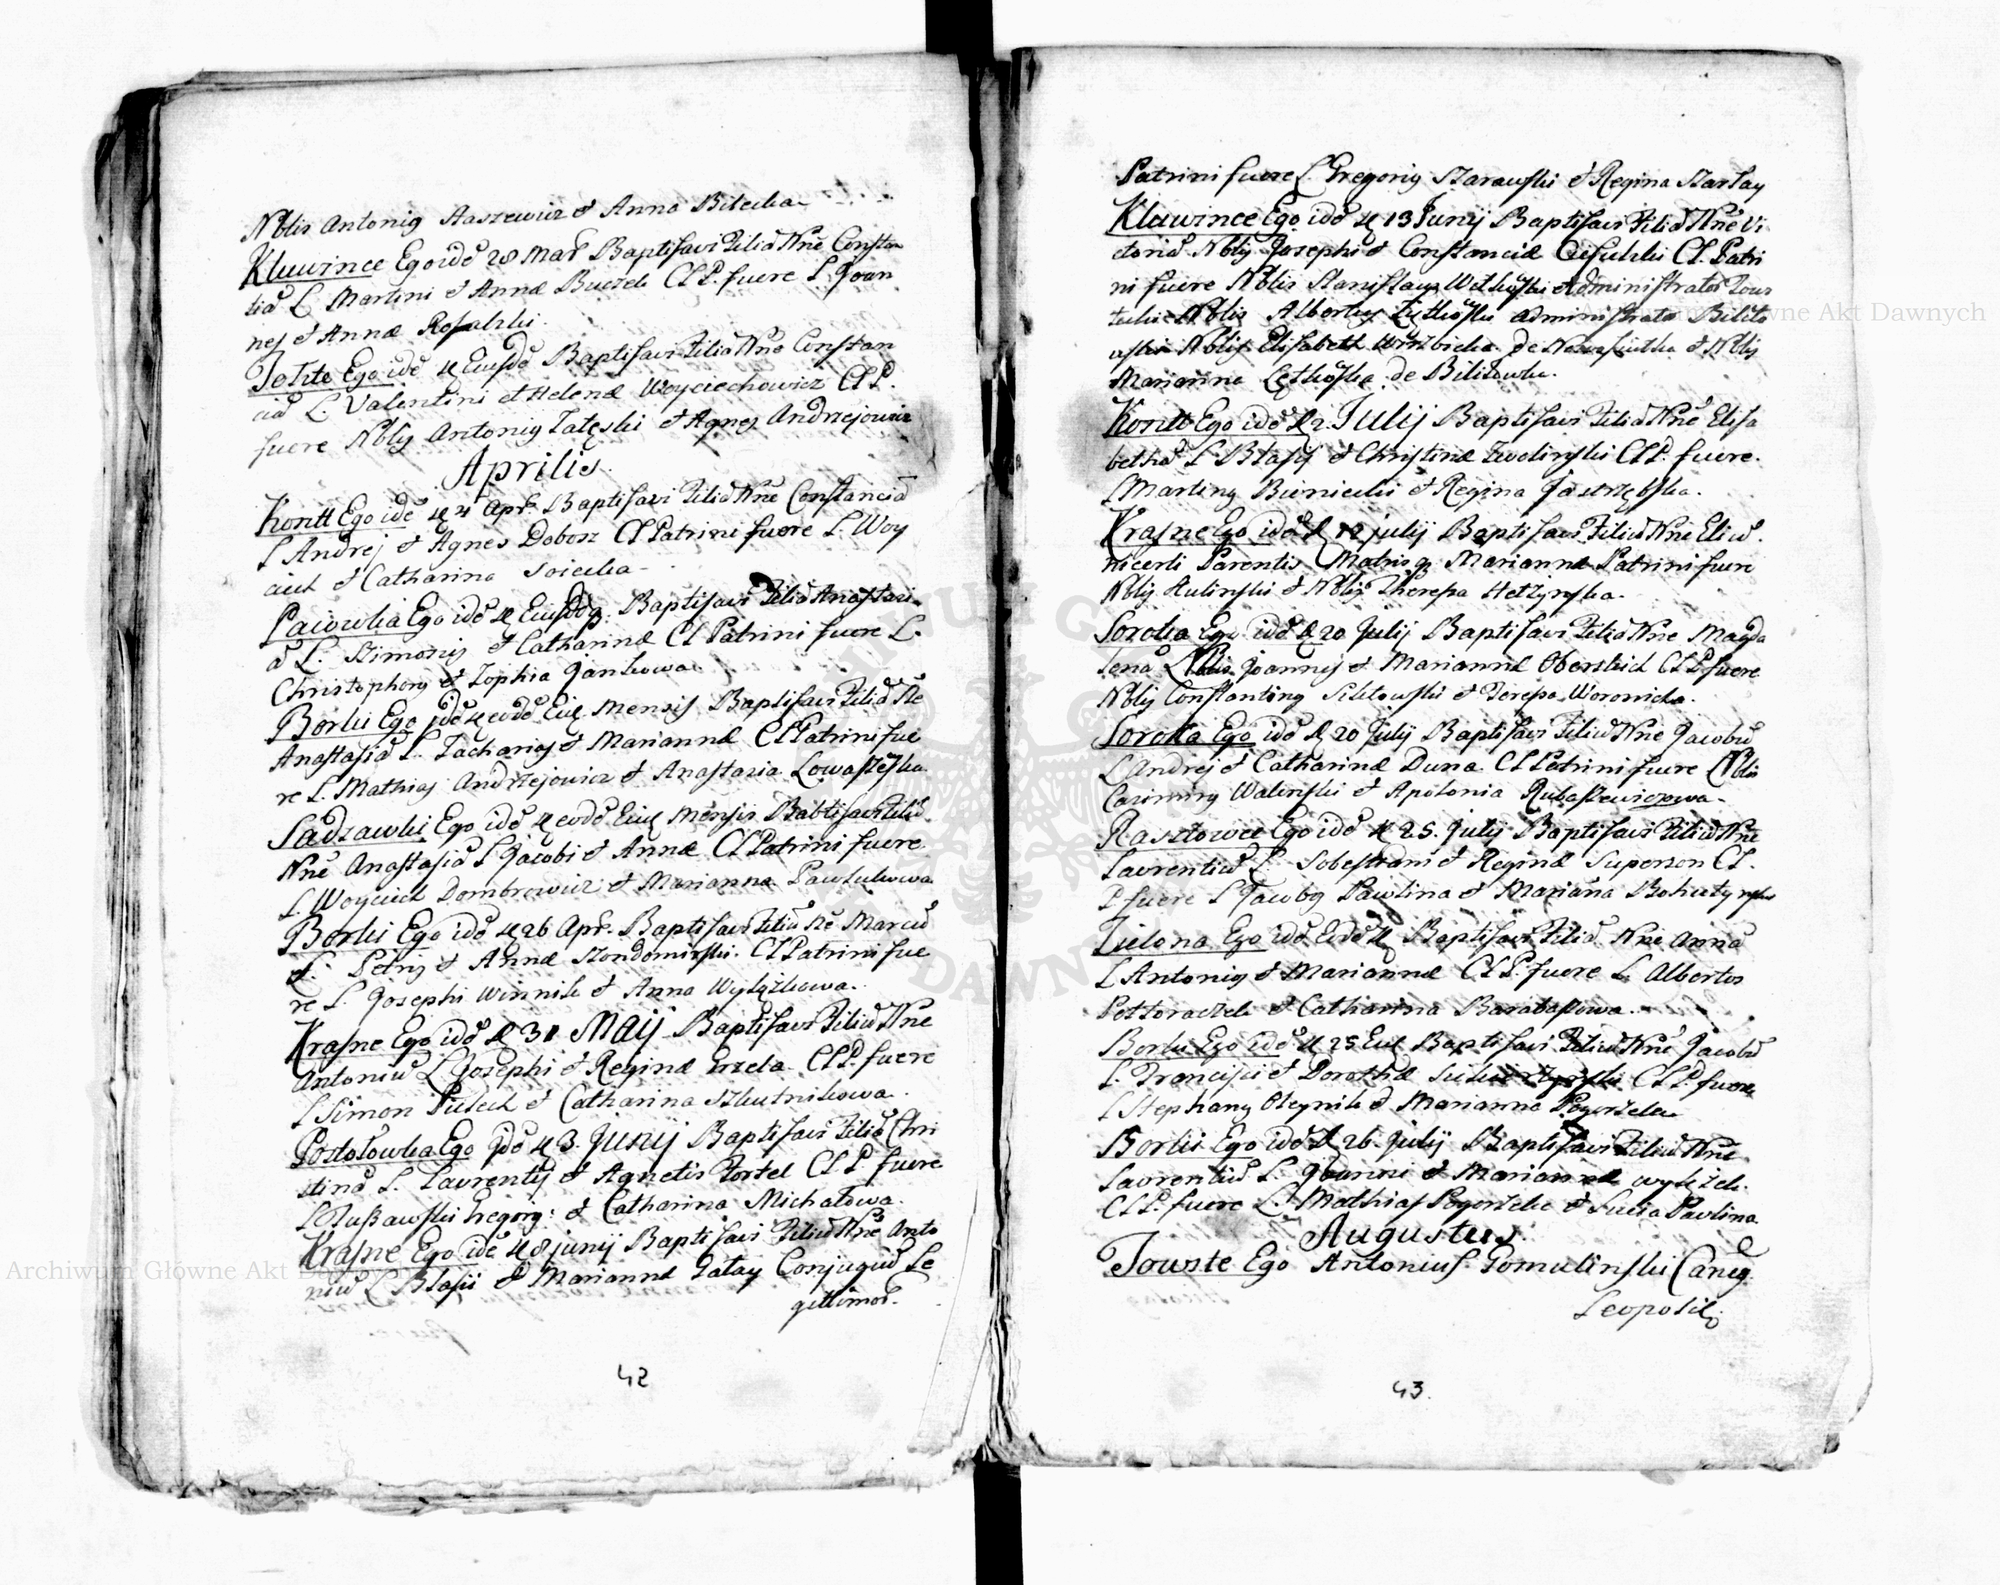 Nblis Antonig Staszewicz et Anna Bitecka
Kluwince Ego idē 28 Mar Baptisavi Filiā Nnē Constan
tiā L. Martini et Annæ Buczek CLP. fuere L. Joan
nes et Annæ Rosalski
Tołste Ego idē Eiusdē Baptisavi Filiā Nnē Constan
ciā L. Valentini et Helenæ Woyciechowicz CLP.
fuere Nblis Antonig Zatęski et Agnes Andrzejowicz
Aprilis
Kontt Ego idē 4 Apr. Baptisavi Filiā Nnē Constanciā
L Andrej et Agnes Dobosz CL Patrini fuere L. Woy
ciech et Catharina Soiecka
Paiowka Ego idē Eiusdē Baptisavi Filiā Anastasi
ā L. Szimonis et Catharinæ CL Patrini fuere L.
Christophorg et Zophia Jankowa
Borki Ego idē eodē Eiq Mensis Baptisavi Filiā Nē
Anastasiā L. Zacharias et Mariannæ CL Patrini fue
re L. Mathias Andrzejowicz et Anastazia Lowaszeska
Sadzawki Ego idē eodē Eiq Mensis Babtisavi Filiā
Nnē Anastasiā L Jacobi et Annæ CL Patrini fuere
L. Woyciech Dombrowicz et Marianna Pawlukowa
Borki Ego idē 26 Apr. Baptisavi Filiū Nē Marcū
L. Petrij et Annæ Szondomirski. CL Patrini fue
re L. Josephi Winnik et Anna Wyleżkowa.
Krasne Ego idē 31 Maij Baptisavi Filiū Nnē
Antoniū L Josephi et Reginæ Grzela CLP. fuere
L Simon Pulech et Catharina Szkutnikowa.
Postołowka Ego idē 3. Junij Baptisavi Filiā Chri
stinā L. Laurentij et Agnetis Portel CLP fuere
L Rußawski Gregorg: et Catharina Michałowa.
Krasne Ego idē 8 junij Baptisavi Filiū Nnē Anto
niū L Blasii et Mariannæ Gatay Conjugiū Le
gittimor.
42
Patrini fuere L. Gregorig Szarawski et Regina Szarłay
Kluwince Ego idē 13 Junij Baptisavi Filiā Nnē Vi
ctoriā Nblij Josephi et Constanciæ Ciesulski CL Patri
ni fuere Nblis Stanislaus Witkowski Administrator Tous
tecki Nblis Albertus Zytkowski Administrator Bilito
wski Nblis Elisabeth Wirzbicka de Nowosiułka et Nblis
Marianna Lętkowska de Biliłowka.
Kontt Ego idē 2 Julij Baptisavi Filiā Nnē Elisa
bethā L Blasij et Christinæ Zwolinski CLP. fuere.
L Marting Biernicki et Regina Jastrzębska.
Krasne Ego idē 12 julij Baptisavi Filiū Nnē Eliū.
nicerti Parentis Matrisq Mariannæ Patrini fuere
Nblis Hulinski et Nblis Theresa Hetzynska.
Soroka Ego idē 20 Julij Baptisavi Filiā Nnē Magda
lenā Nblis Joannis et Mariannæ Oberskich CLP. fuere
Nblij Constanting Siletowski et Teresa Woronicka.
Sorotta Ego idē 20 July Baptisavi Filiū Nnē Jacobū
L Andrej et Catharinæ Duna CL Patrini fuere Nblis
Casimirg Walinski et Apolonia Rubaszewiczowa.
Rasztowce Ego idē 25. July Baptisavi Filiū Nnē
Laurentiū L. Sobestiani et Reginæ Superson CL.
P fuere L Jacobg Pawlina et Mariana Bohutynska
Zielona Ego idē Eodē Baptisavi Filiā Nnē Annā
L Antonig et Mariannæ CLP. fuere L. Albertos
Pottoraczek et Catharina Barabaszowa.
Borki Ego idē 25 Eiq Baptisavi Filiū Nnē Jacobū
L. Francisci et Dorothæ CLP. fuere
L Stephang Oleynik et Marianna Pogorzelec
Borki Ego idē 26. Julij Baptisavi Filiū Nnē
Laurentiū L. Joannis et Mariannæ Wyleżek.
CLP. fuere L. Mathias Pogorzelec et Lucia Pavlina
Augustus.
Touste Ego Antonius Gomulinski Caneg.
Leopoliē
43.
Archiwum Główne Akt Dawnych